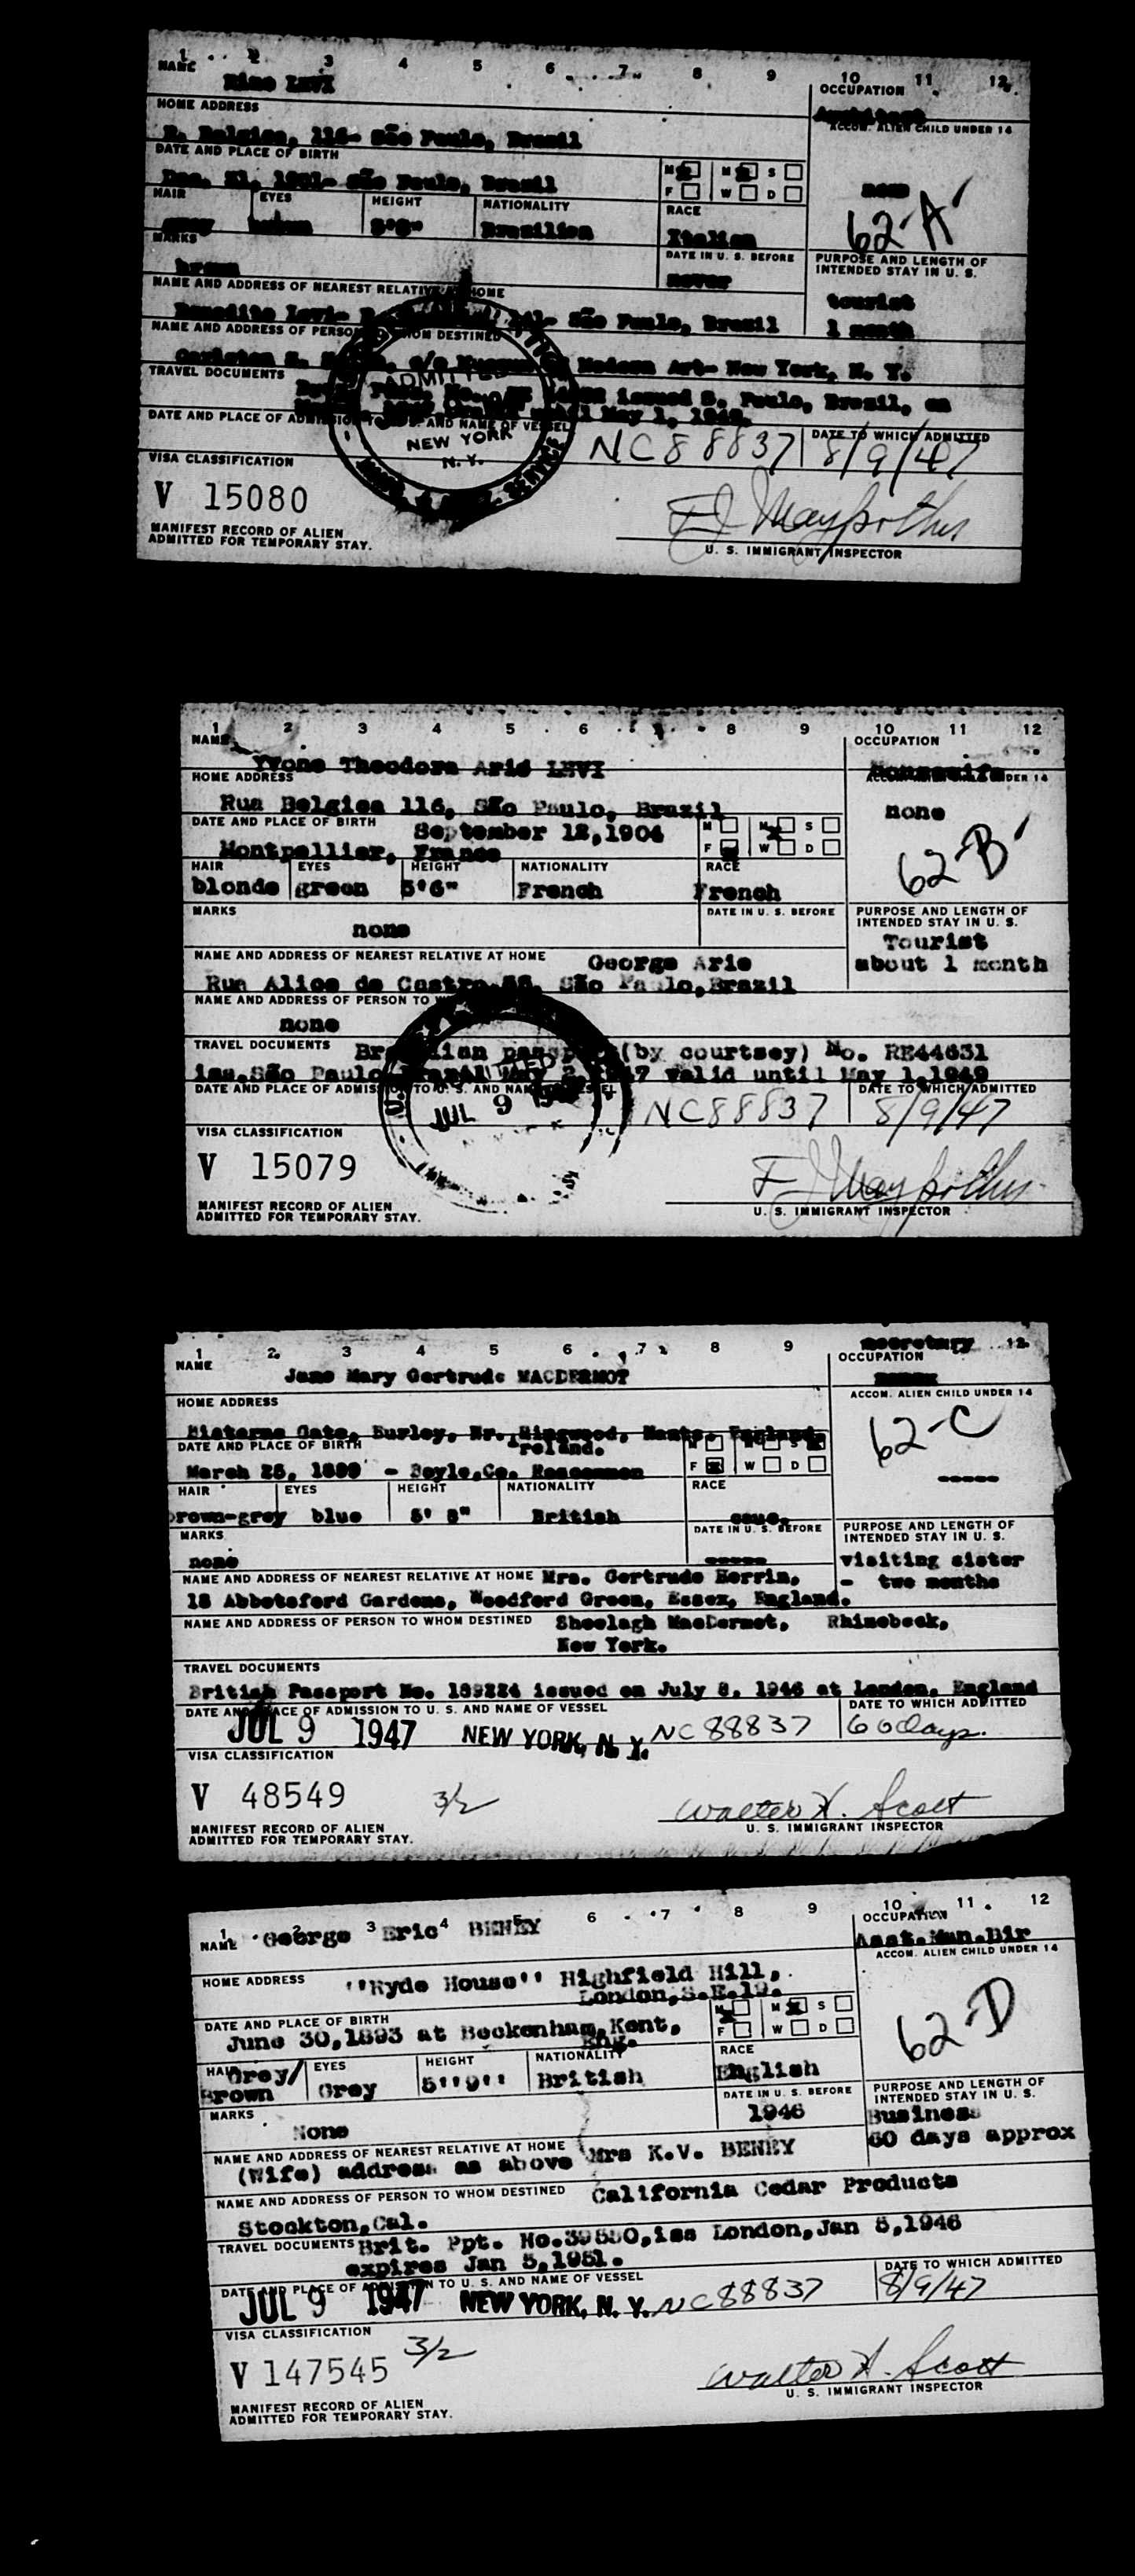 1 2 3 4 5 6 7 8 9 10 11 12
NAME Rino LEVI OCCUPATION Architect
HOME ADDRESS ACCOM. ALIEN CHILD UNDER 14
R. Belgica, 116- São Paulo, Brazil
DATE AND PLACE OF BIRTH
Dec. 31, 1901- São Paulo, Brazil M M S
F W D
HAIR EYES HEIGHT NATIONALITY RACE
grey brown Brazilian Italian
62-A
MARKS brown DATE IN U. S. BEFORE never
PURPOSE AND LENGTH OF INTENDED STAY IN U. S.
tourist
1 month
NAME AND ADDRESS OF NEAREST RELATIVE AT HOME
Levi- São Paulo, Brazil
NAME AND ADDRESS OF PERSON TO WHOM DESTINED
c/o Museum Modern Art- New York, N. Y.
TRAVEL DOCUMENTS
issued S. Paulo, Brazil, on
May 1, 1949.
DATE AND PLACE OF ADMISSION TO U. S. AND NAME OF VESSEL
ADMITTED
NEW YORK
N. Y.
NC88837 DATE TO WHICH ADMITTED 8/9/47
VISA CLASSIFICATION
V 15080
MANIFEST RECORD OF ALIEN
ADMITTED FOR TEMPORARY STAY.
U. S. IMMIGRANT INSPECTOR
1 2 3 4 5 6 7 8 9 10 11 12
NAME Yvone Theodora Arié LEVI OCCUPATION Housewife
HOME ADDRESS
Rua Belgica 116, São Paulo, Brazil none
DATE AND PLACE OF BIRTH September 12,1904 M M S
Montpellier, France F W D
62-B
HAIR EYES HEIGHT NATIONALITY RACE
blonde green 5'6" French French
MARKS none DATE IN U. S. BEFORE
PURPOSE AND LENGTH OF INTENDED STAY IN U. S.
Tourist
about 1 month
NAME AND ADDRESS OF NEAREST RELATIVE AT HOME George Arie
Rua Alice de Castro São Paulo,Brazil
NAME AND ADDRESS OF PERSON TO
none
TRAVEL DOCUMENTS Brazilian passport (by courtsey) No. RE44631
iss.São Paulo Brazil May 2,1947 valid until May 1,1949
DATE AND PLACE OF ADMISSION TO U. S. AND NAME OF VESSEL
JUL 9
NC88837 DATE TO WHICH ADMITTED 8/9/47
VISA CLASSIFICATION
V 15079
MANIFEST RECORD OF ALIEN
ADMITTED FOR TEMPORARY STAY.
U. S. IMMIGRANT INSPECTOR
1 2 3 4 5 6 7 8 9 12
NAME Jane Mary Gertrude MACDERMOT secretary
OCCUPATION
HOME ADDRESS ACCOM. ALIEN CHILD UNDER 14
Bisterne Gate, Burley, Nr. Ringwood, Hants. England.
DATE AND PLACE OF BIRTH Ireland. M W S
March 25, 1899 - Boyle,Co. Roscommon F W D
62-C
-----
HAIR EYES HEIGHT NATIONALITY RACE
brown-grey blue British cauc.
MARKS none DATE IN U. S. BEFORE -----
PURPOSE AND LENGTH OF INTENDED STAY IN U. S.
visiting sister
- two months
NAME AND ADDRESS OF NEAREST RELATIVE AT HOME Mrs. Gertrude
18 Abbotsford Gardens, Woodford Green, Essex, England.
NAME AND ADDRESS OF PERSON TO WHOM DESTINED Sheelagh MacDermot, Rhinebeck,
New York.
TRAVEL DOCUMENTS
British Passport No. issued on July 8, 1946 at London, England
DATE AND PLACE OF ADMISSION TO U. S. AND NAME OF VESSEL DATE TO WHICH ADMITTED
JUL 9 1947 NEW YORK, N. Y. NC88837 60 days.
VISA CLASSIFICATION
V 48549 3/2 Walter H. Scott
MANIFEST RECORD OF ALIEN
ADMITTED FOR TEMPORARY STAY.
U. S. IMMIGRANT INSPECTOR
1 2 3 4 5 6 7 8 9 10 11 12
NAME George Eric BENEY OCCUPATION Asst.Man.Dir
ACCOM. ALIEN CHILD UNDER 14
HOME ADDRESS ''Ryde House'' Highfield Hill,
London,S.E.19.
DATE AND PLACE OF BIRTH M M S
June 30,1893 at Beckenham,Kent, F W D
Eng.
62-D
HAIR EYES HEIGHT NATIONALITY RACE
Grey/ Brown Grey 5''9'' British English
MARKS None DATE IN U. S. BEFORE 1946
PURPOSE AND LENGTH OF INTENDED STAY IN U. S.
Business
60 days approx
NAME AND ADDRESS OF NEAREST RELATIVE AT HOME Mrs K.V. BENEY
(Wife) address as above
NAME AND ADDRESS OF PERSON TO WHOM DESTINED California Cedar Products
Stockton,Cal.
TRAVEL DOCUMENTS Brit. Ppt. iss London,Jan 5,1946
expires Jan 5,1951.
DATE AND PLACE OF ADMISSION TO U. S. AND NAME OF VESSEL DATE TO WHICH ADMITTED
JUL 9 1947 NEW YORK, N. Y. NC88837 8/9/47
VISA CLASSIFICATION
V 147545 3/2 Walter H. Scott
MANIFEST RECORD OF ALIEN
ADMITTED FOR TEMPORARY STAY.
U. S. IMMIGRANT INSPECTOR